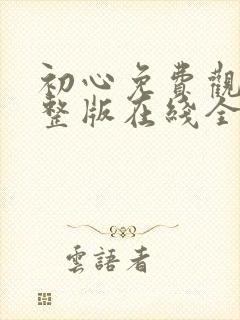 初心免費觀
整版在綫全
雲語者